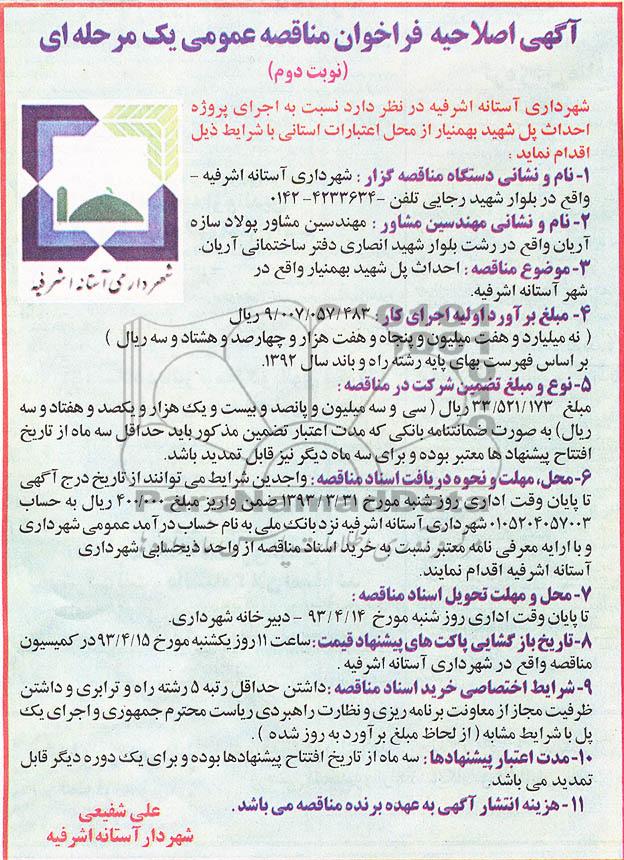 آگهی اصلاحیه فراخوان مناقصه عمومی یک مرحله ای
(نوبت دوم)
شهرداری آستانه اشرفیه در نظر دارد نسبت به اجرای پروژه
احداث پل شهید بهمنیار از محل اعتبارات استانی با شرایط ذیل
اقدام نماید :
۱- نام و نشانی دستگاه مناقصه گزار : شهرداری آستانه اشرفیه -
واقع در بلوار شهید رجایی تلفن -۴۲۳۳۶۳۴- ۰۱۴۲
۲- نام و نشانی مهندسین مشاور : مهندسین مشاور پولاد سازه
آریان واقع در رشت بلوار شهید انصاری دفتر ساختمانی آریان.
۳- موضوع مناقصه : احداث پل شهید بهمنیار واقع در
شهر آستانه اشرفیه.
شهرداری آستانه اشرفیه
۴- مبلغ برآورد اولیه اجرای کار : ۹/۰۰۷/۰۵۷/۴۸۳ ریال
( نه میلیارد و هفت میلیون و پنجاه و هفت هزار و چهارصد و هشتاد و سه ریال )
بر اساس فهرست بهای پایه رشته راه و باند سال ۱۳۹۲.
۵- نوع و مبلغ تضمین شرکت در مناقصه :
مبلغ ۳۳/۵۲۱/۱۷۳ ریال ( سی و سه میلیون و پانصد و بیست و یک هزار و یکصد و هفتاد و سه
ریال) به صورت ضمانتنامه بانکی که مدت اعتبار تضمین مذکور باید حداقل سه ماه از تاریخ
افتتاح پیشنهاد ها معتبر بوده و برای سه ماه دیگر نیز قابل تمدید باشد.
۶- محل، مهلت و نحوه دریافت اسناد مناقصه : واجدین شرایط می توانند از تاریخ درج آگهی
تا پایان وقت اداری روز شنبه مورخ ۱۳۹۳/۳/۳۱ ضمن واریز مبلغ ۴۰۰/۰۰۰ ریال به حساب
۰۱۰۵۲۰۴۰۵۷۰۰۳ شهرداری آستانه اشرفیه نزد بانک ملی به نام حساب درآمد عمومی شهرداری
و با ارایه معرفی نامه معتبر نسبت به خرید اسناد مناقصه از واحد ذیحسابی شهرداری
آستانه اشرفیه اقدام نمایند.
۷- محل و مهلت تحویل اسناد مناقصه :
تا پایان وقت اداری روز شنبه مورخ ۹۳/۴/۱۴ - دبیرخانه شهرداری.
۸- تاریخ باز گشایی پاکت های پیشنهاد قیمت : ساعت ۱۱ روز یکشنبه مورخ ۹۳/۴/۱۵ در کمیسیون
مناقصه واقع در شهرداری آستانه اشرفیه .
۹- شرایط اختصاصی خرید اسناد مناقصه : داشتن حداقل رتبه ۵ رشته راه و ترابری و داشتن
ظرفیت مجاز از معاونت برنامه ریزی و نظارت راهبردی ریاست محترم جمهوری و اجرای یک
پل با شرایط مشابه ( از لحاظ مبلغ برآورد به روز شده ) .
۱۰- مدت اعتبار پیشنهادها : سه ماه از تاریخ افتتاح پیشنهادها بوده و برای یک دوره دیگر قابل
تمدید می باشد.
۱۱- هزینه انتشار آگهی به عهده برنده مناقصه می باشد .
علی شفیعی
شهردار آستانه اشرفیه
ParsNamadData